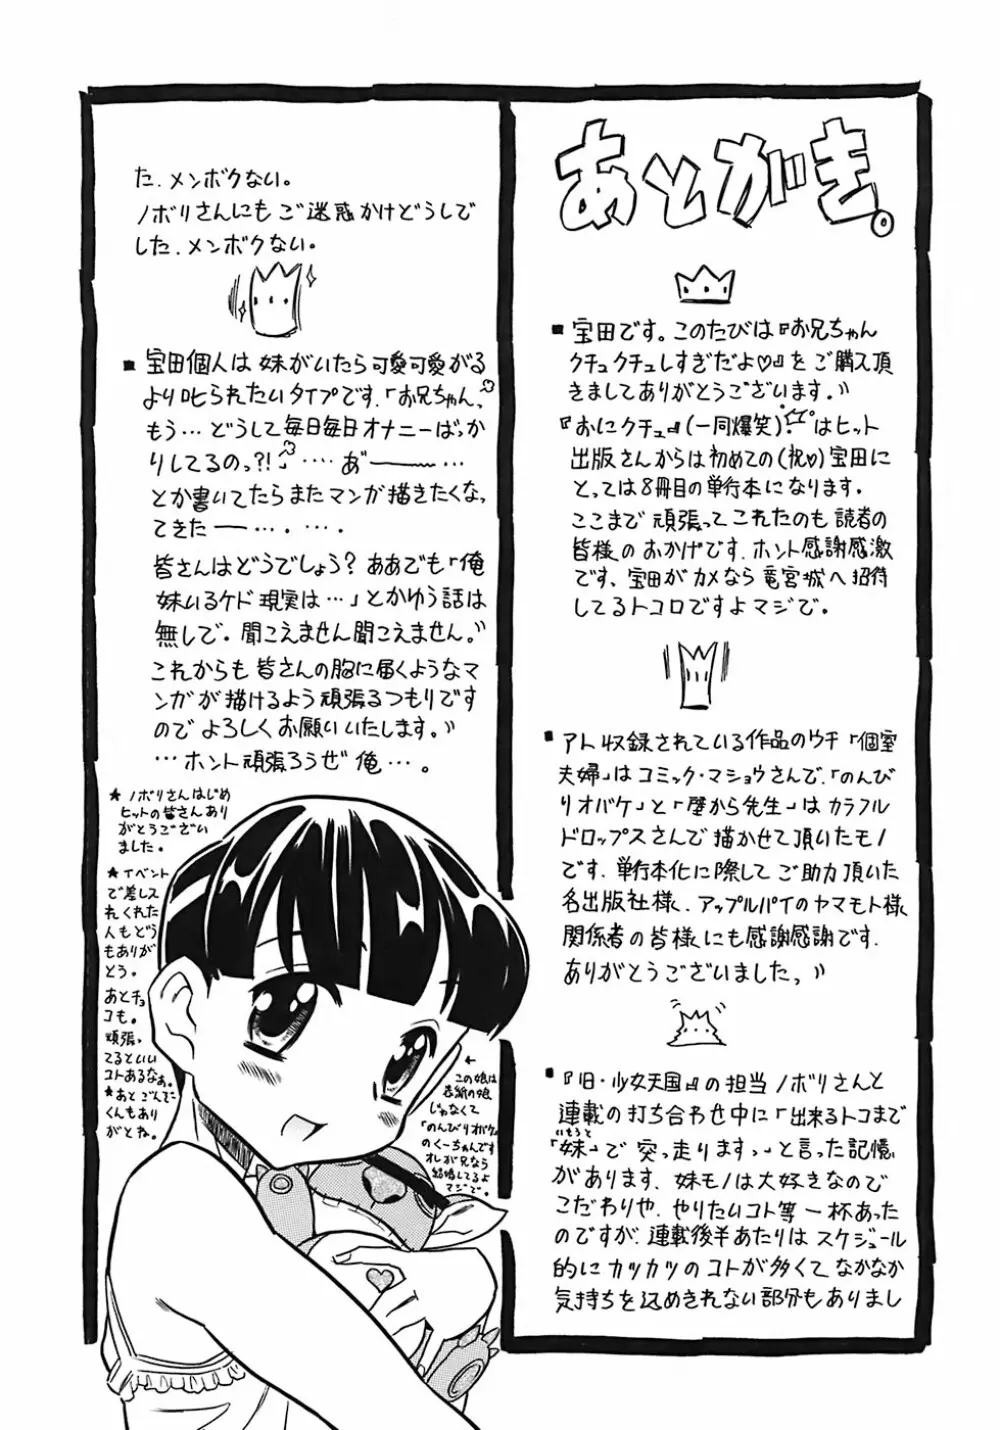 あとがき。
■宝田です。このたびは『お兄ちゃん
クチュクチュしすぎだよ♡』をご購入頂
きましてありがとうございます。〃
『おにクチュ』(一同爆笑)はヒット
出版さんからは初めての(祝♡)宝田に
とっては8冊目の単行本になります。
ここまで頑張ってこれたのも読者の
皆様のおかげです。ホント感謝感激
です、宝田がカメなら竜宮城へ招待
してるトコロですよマジで。
■アト収録されている作品のウチ「個室
夫婦」はコミック・マショウさんで、「のんび
りオバケ」と「壁から先生」はカラフル
ドロップスさんで描かせて頂いたモノ
です。単行本化に際してご助力頂いた
名出版社様、アップルパイのヤマモト様
関係者の皆様にも感謝感謝です。
ありがとうございましたっ〃
■『旧・少女天国』の担当ノボリさんと
連載の打ち合わせ中に「出来るトコまで
「妹」で突っ走りますっ」と言った記憶
いもうと
があります。妹モノは大好きなので
こだわりや、やりたいコト等一杯あった
のですが、連載後半あたりはスケジュール
的にカツカツのコトが多くてなかなか
気持ちを込めきれない部分もありまし
た、メンボクない。
ノボリさんにもご迷惑かけどうしで
した、メンボクない。
■宝田個人は妹がいたら可愛可愛がる
より叱られたいタイプです。「お兄ちゃんっ
もう…どうして毎日毎日オナニーばっか
りしてるのっ?!」‥‥あ゛ー…
とか書いてたらまたマンガ描きたくなっ
てきたー…・…・
皆さんはどうでしょう?ああでも「俺
妹いるケド現実は…」とかゆう話は
無しで。聞こえません聞こえません。〃
これからも皆さんの胸に届くようなマ
ンガが描けるよう頑張るつもりです
のでよろしくお願いいたします。〃
…ホント頑張ろうぜ俺…。
★ノボリさんはじめ
ヒットの皆さんあり
がとうござい
ました。
★イベント
で差し入
れくれた
人もどう
もありが
とう。
あとチョ
コも。
頑張っ
てるといい
コトあるなぁ。
★あとごんた
くんもあり
がとね。
←
この娘は
表紙の娘
じゃなくて
「のんびりオバケ」
のくーちゃんです
オレが兄なら
結婚してるよ
マジで。